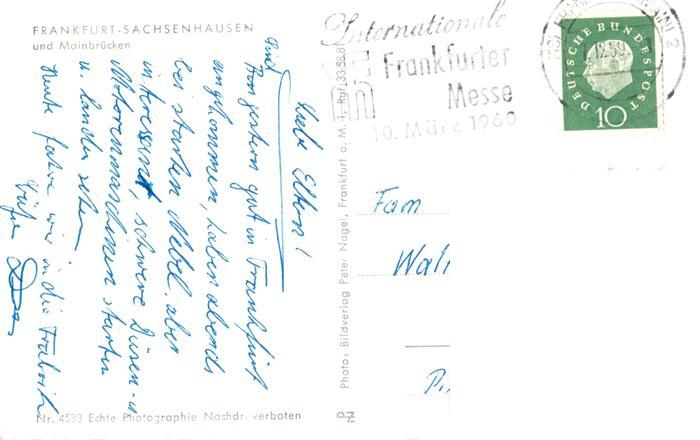 FRANKFURT-SACHSENHAUSEN
und Mainbrücken
Liebe Eltern!
Sind
gestern gut in Frankfurt
angekommen, haben abends
bei starken Nebel aber
interessant, schwere Düsen-u
Motorenmaschinen starten
u. landen sehen.
Heute fahren wir in die Fabrik
Nr. 4533 Echte Photographie Nachdr. verboten
Photo: Bildverlag Peter Nagel, Frankfurt a. M.-1, Ruf 335881
Internationale
Frankfurter
Messe
10. März 1960
12.59
2
DEUTSCHE BUNDESPOST
10
Fam
Wal